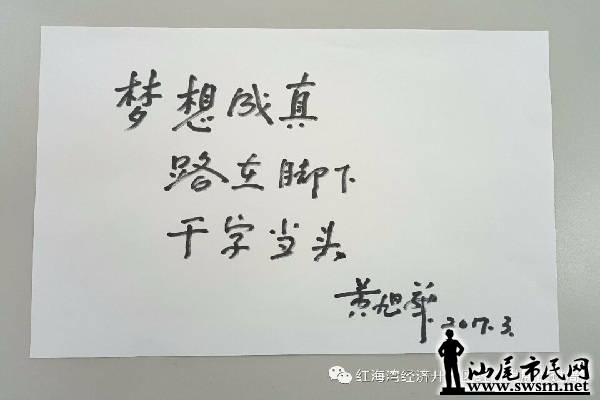 梦想成真
路在脚下
干字当头
黄旭华
2017.3.
红海湾经济开
汕尾市民网
www.swsm.net